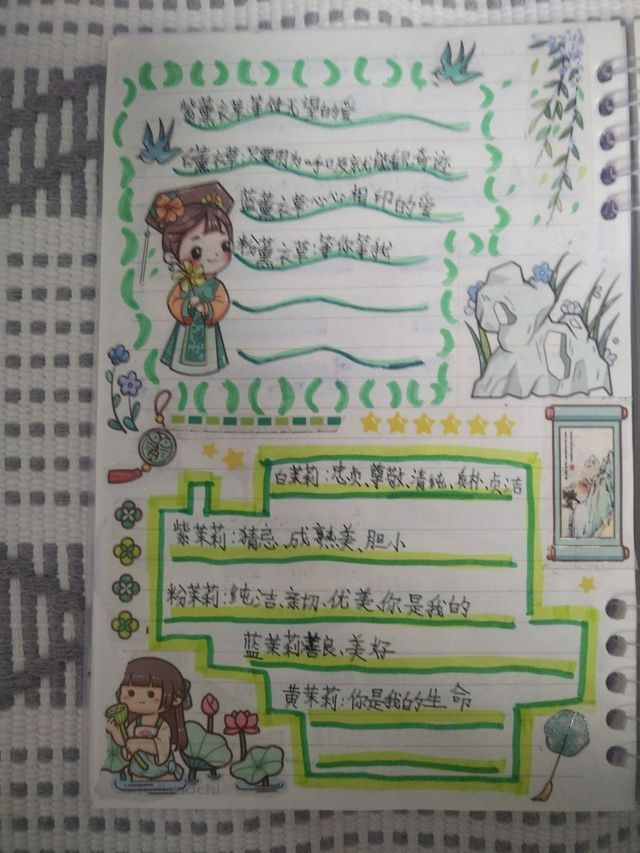 紫薰衣草:等待无望的爱
白薰衣草:只要因为呼吸你就能有奇迹
蓝薰衣草心心相印的爱
粉薰衣草:等你等我
白茉莉:忠贞、尊敬、清纯、质朴、贞洁
紫茉莉:猜忌、成熟美、胆小
粉茉莉:纯洁、亲切、优美、你是我的
蓝茉莉善良、美好
黄茉莉:你是我的生命